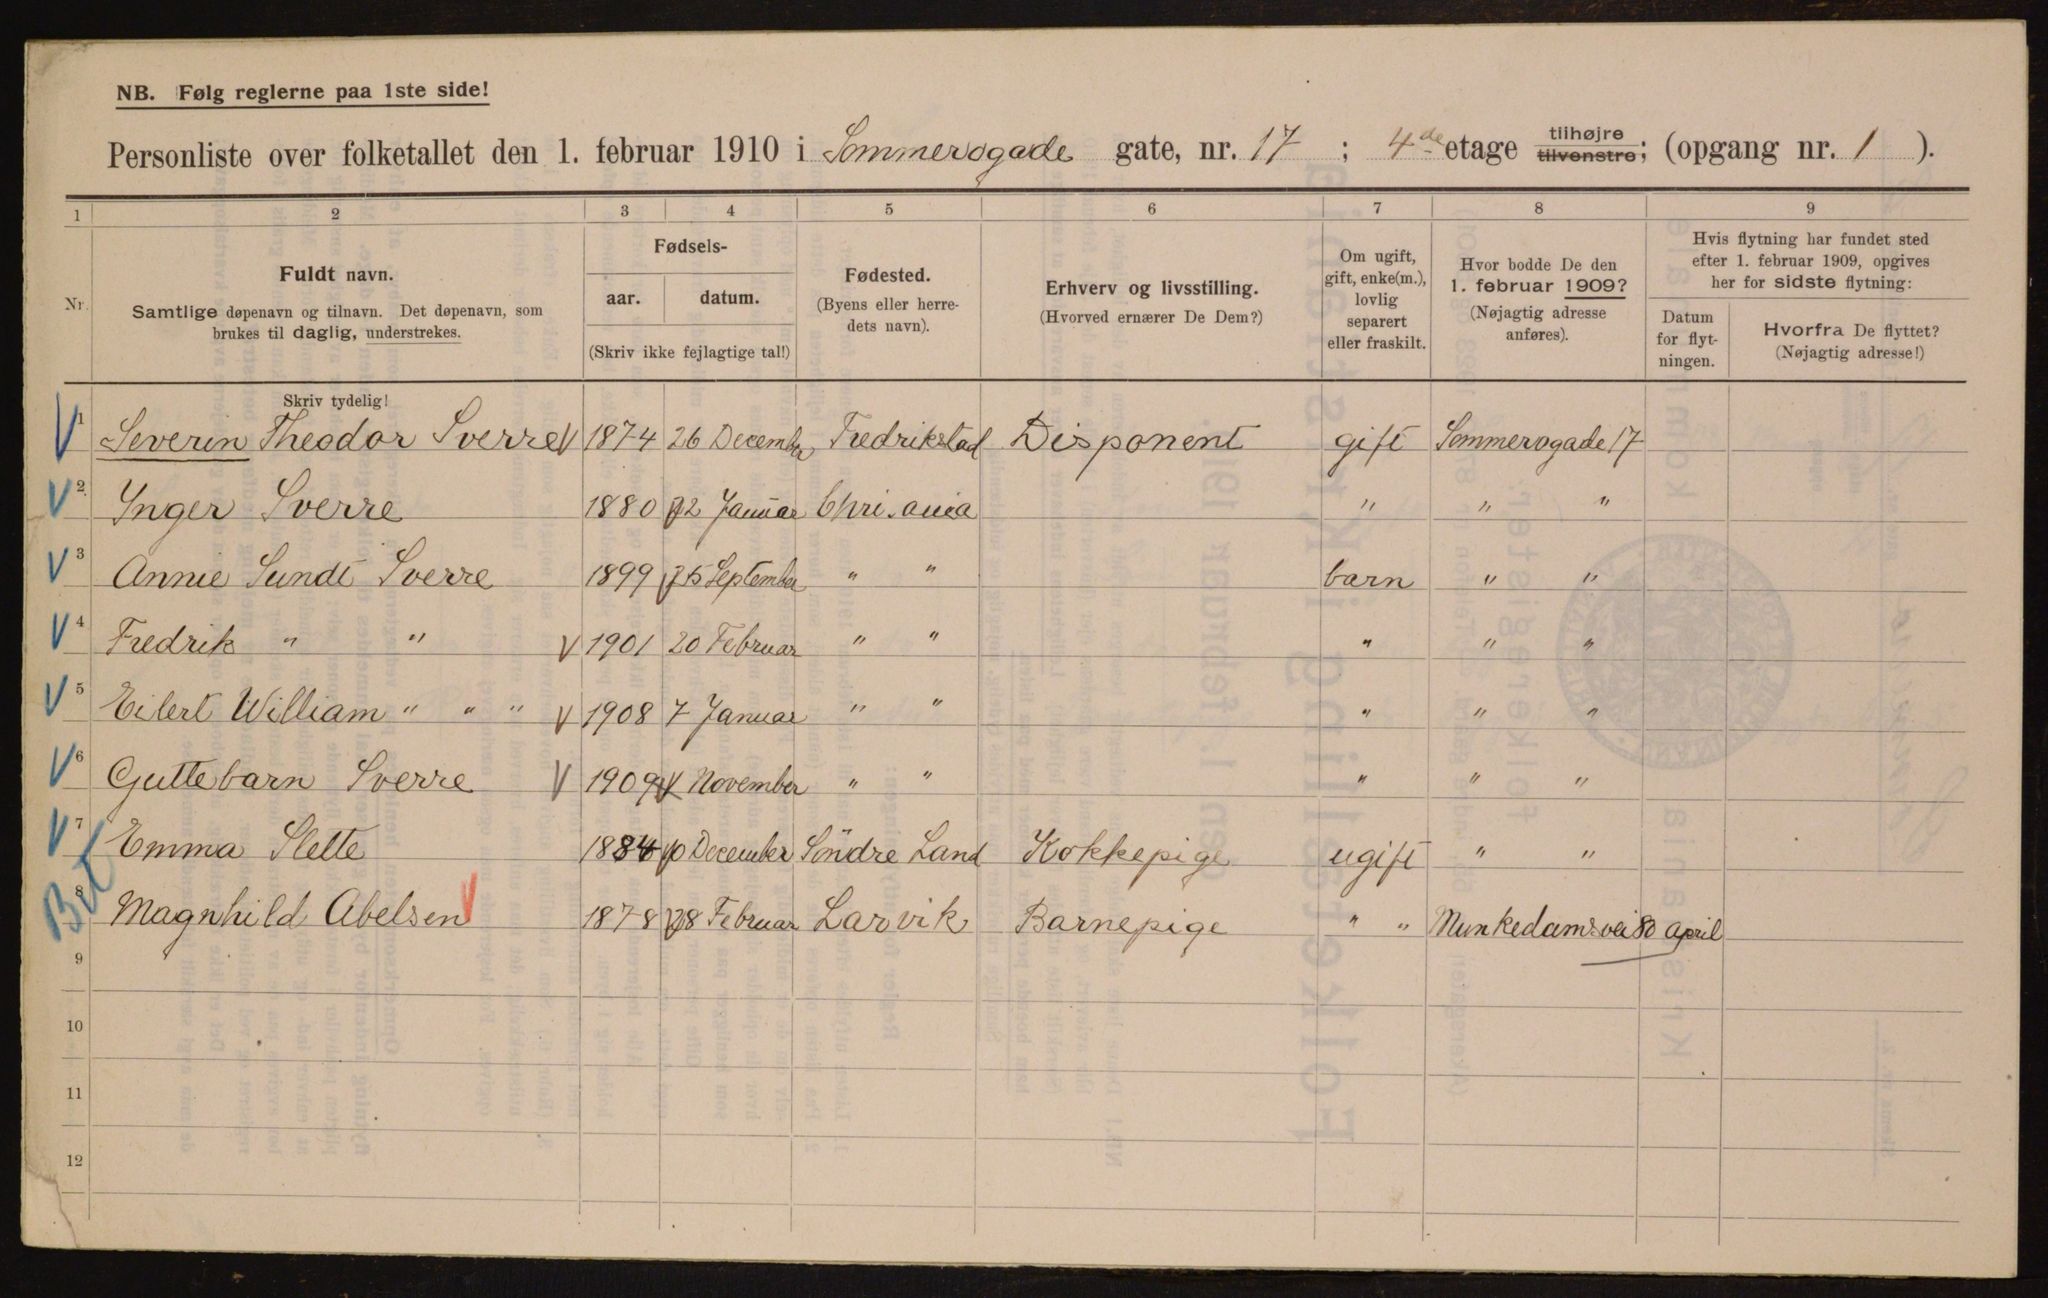 NB. Følg reglerne paa 1ste side!
Personliste over folketallet den 1. februar 1910 i Sommerogade gate, nr. 17 ; 4de etage tilhøjre tilvenstre; (opgang nr. 1 ).
1 2 3 4 5 6 7 8 9
Nr.
Fuldt navn.
Samtlige døpenavn og tilnavn. Det døpenavn, som
brukes til daglig, understrekes.
Skriv tydelig!
Fødsels-
aar. datum.
(Skriv ikke fejlagtige tal!)
Fødested.
(Byens eller herre-
dets navn).
Erhverv og livsstilling.
(Hvorved ernærer De Dem?)
Om ugift,
gift, enke(m.),
lovlig
separert
eller fraskilt.
Hvor bodde De den
1. februar 1909?
(Nøjagtig adresse
anføres).
Hvis flytning har fundet sted
efter 1. februar 1909, opgives
her for sidste flytning:
Datum
for flyt-
ningen.
Hvorfra De flyttet?
(Nøjagtig adresse!)
1 Severin Theodor Sverre 1874 26 December Fredrikstad Disponent gift Sommerogade 17
2. Ynger Sverre 1880 Januar " " "
3 Annie Sundt Sverre 1899 September " " barn " "
4 Fredrik " " 1901 20 Februar " " " " "
5 Eilert William " " " 1908 7 Januar " " " " "
6 Guttebarn Sverre 1909 November " " " " "
7 Emma Slette 1884 December Söndre Land Kokkepige ugift " "
8 Magnhild Abelsen 1878 Februar Larvik Barnepige " " Munkedamsvei 80 april
9
10
11
12